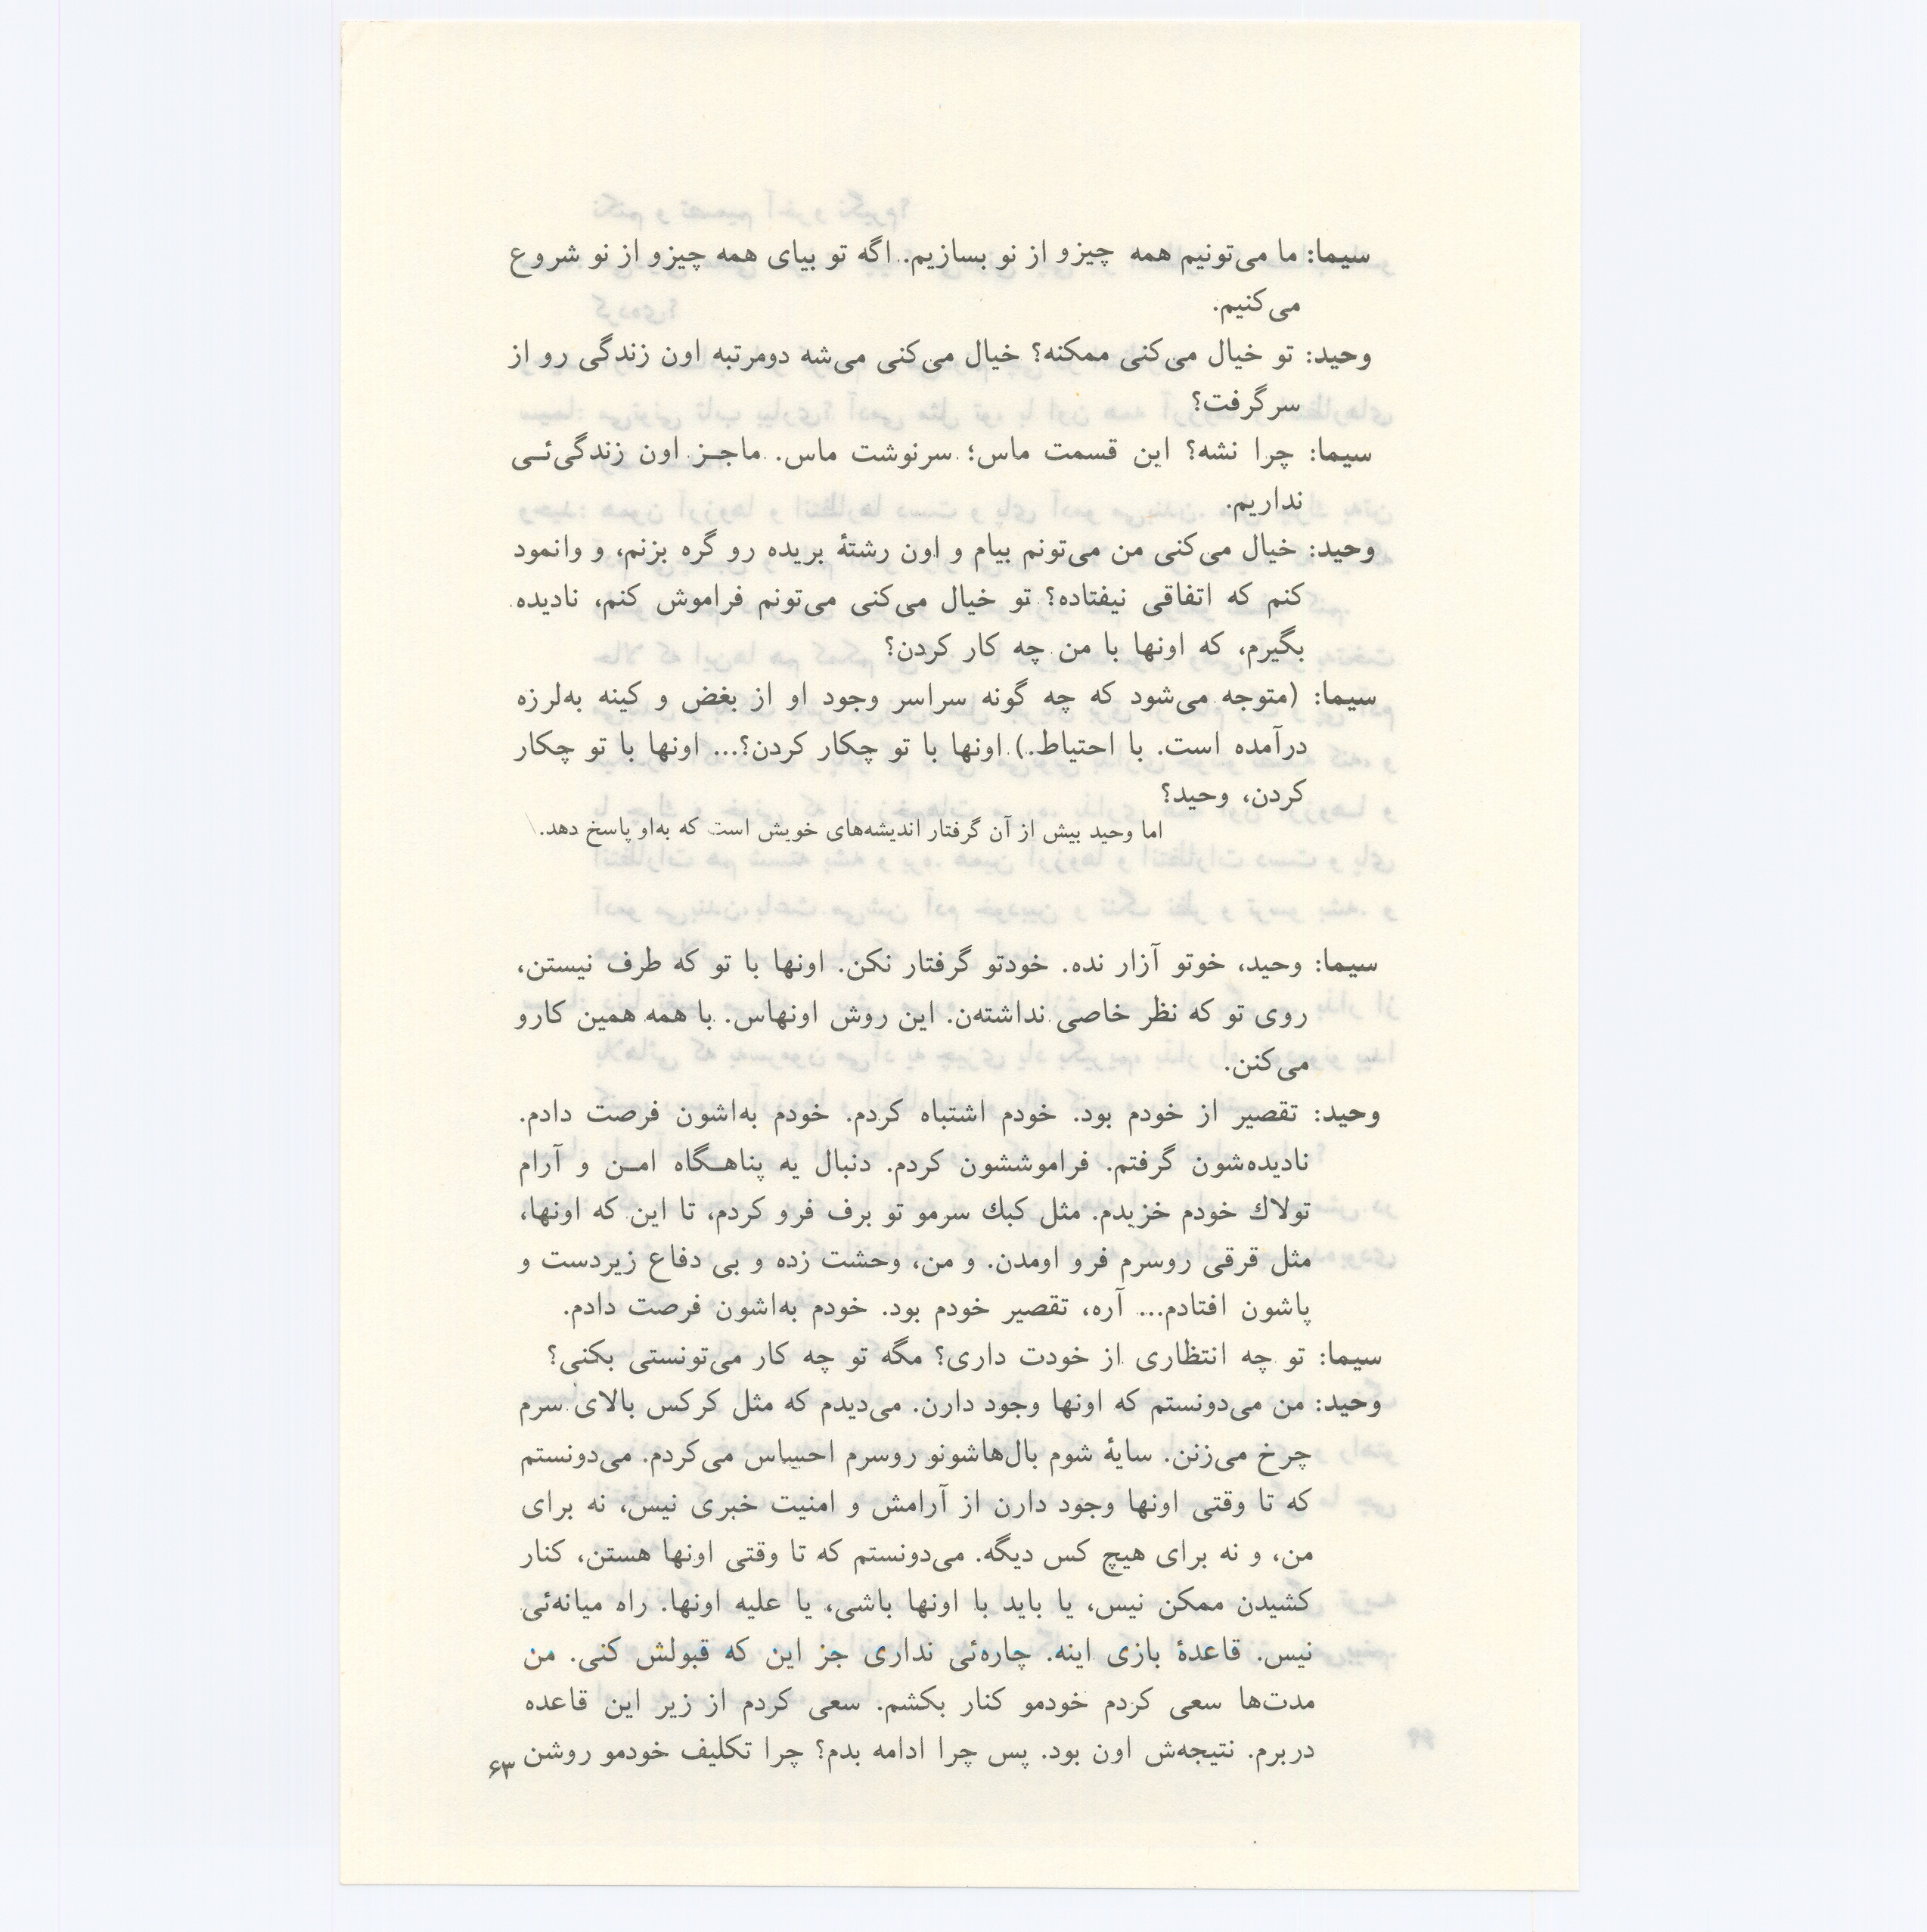 سیما: ما می‌تونیم همه چیزو از نو بسازیم. اگه تو بیای همه چیزو از نو شروع
می‌کنیم.
وحید: تو خیال می‌کنی ممکنه؟ خیال می‌کنی می‌شه دومرتبه اون زندگی رو از
سرگرفت؟
سیما: چرا نشه؟ این قسمت ماس؛ سرنوشت ماس. ماجــز اون زندگی‌ئــی
نداریم.
وحید: خیال می‌کنی من می‌تونم بیام و اون رشتهٔ بریده رو گره بزنم، و وانمود
کنم که اتفاقی نیفتاده؟ تو خیال می‌کنی می‌تونم فراموش کنم، نادیده
بگیرم، که اونها با من چه کار کردن؟
سیما: (متوجه می‌شود که چه گونه سراسر وجود او از بغض و کینه به‌لرزه
درآمده است. با احتیاط.) اونها با تو چکار کردن؟... اونها با تو چکار
کردن، وحید؟
اما وحید بیش از آن گرفتار اندیشه‌های خویش است که به‌او پاسخ دهد.
سیما: وحید، خوتو آزار نده. خودتو گرفتار نکن. اونها با تو که طرف نیستن،
روی تو که نظر خاصی نداشته‌ن. این روش اونهاس. با همه همین کارو
می‌کنن.
وحید: تقصیر از خودم بود. خودم اشتباه کردم. خودم به‌اشون فرصت دادم.
نادیده‌شون گرفتم. فراموششون کردم. دنبال یه پناهــگاه امــن و آرام
تولاك خودم خزیدم. مثل کبك سرمو تو برف فرو کردم، تا این که اونها،
مثل قرقی روسرم فرو اومدن. و من، وحشت زده و بی دفاع زیردست و
پاشون افتادم... آره، تقصیر خودم بود. خودم به‌اشون فرصت دادم.
سیما: تو چه انتظاری از خودت داری؟ مگه تو چه کار می‌تونستی بکنی؟
وحید: من می‌دونستم که اونها وجود دارن. می‌دیدم که مثل کرکس بالای سرم
چرخ می‌زنن. سایهٔ شوم بال‌هاشونو روسرم احساس می‌کردم. می‌دونستم
که تا وقتی اونها وجود دارن از آرامش و امنیت خبری نیس، نه برای
من، و نه برای هیچ کس دیگه. می‌دونستم که تا وقتی اونها هستن، کنار
کشیدن ممکن نیس، یا باید با اونها باشی، یا علیه اونها. راه میانه‌ئی
نیس. قاعدهٔ بازی اینه. چاره‌ئی نداری جز این که قبولش کنی. من
مدت‌ها سعی کردم خودمو کنار بکشم. سعی کردم از زیر این قاعده
دربرم. نتیجه‌ش اون بود. پس چرا ادامه بدم؟ چرا تکلیف خودمو روشن
۶۳